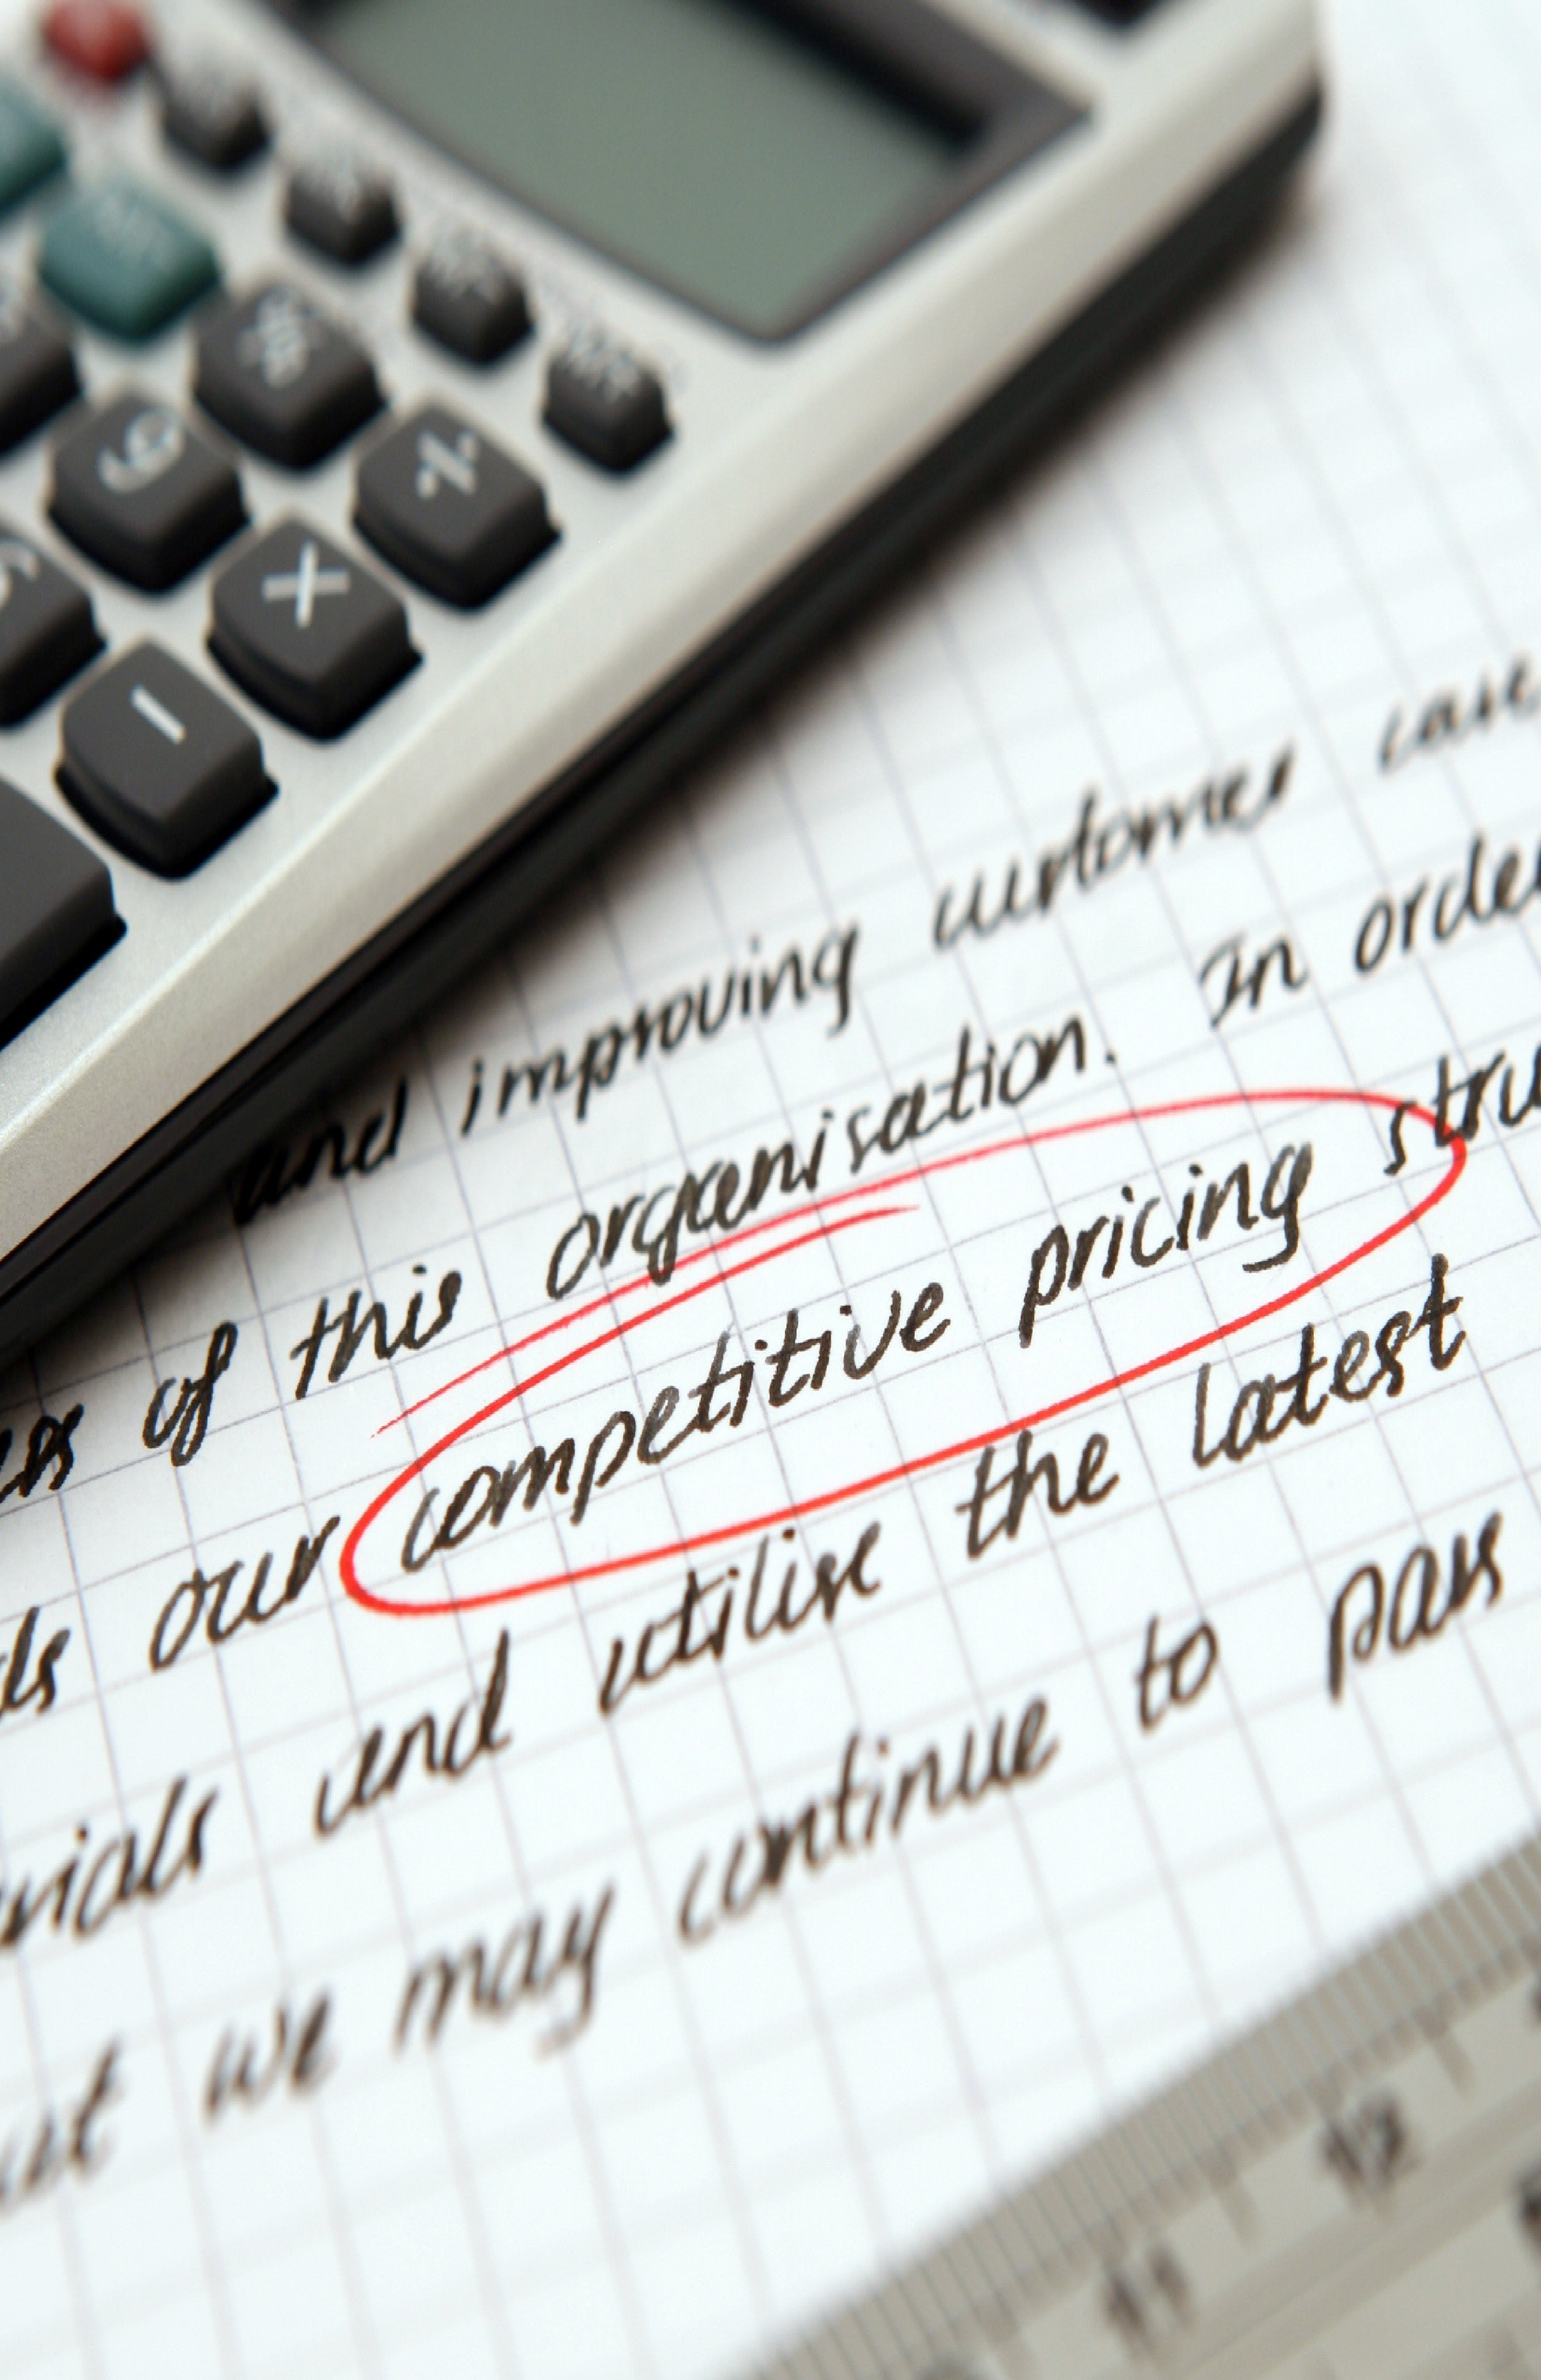 %
9
÷
×
−
and improving customer care
of this organisation. In order
our competitive pricing stru
and utilise the latest
we may continue to pass
12
11